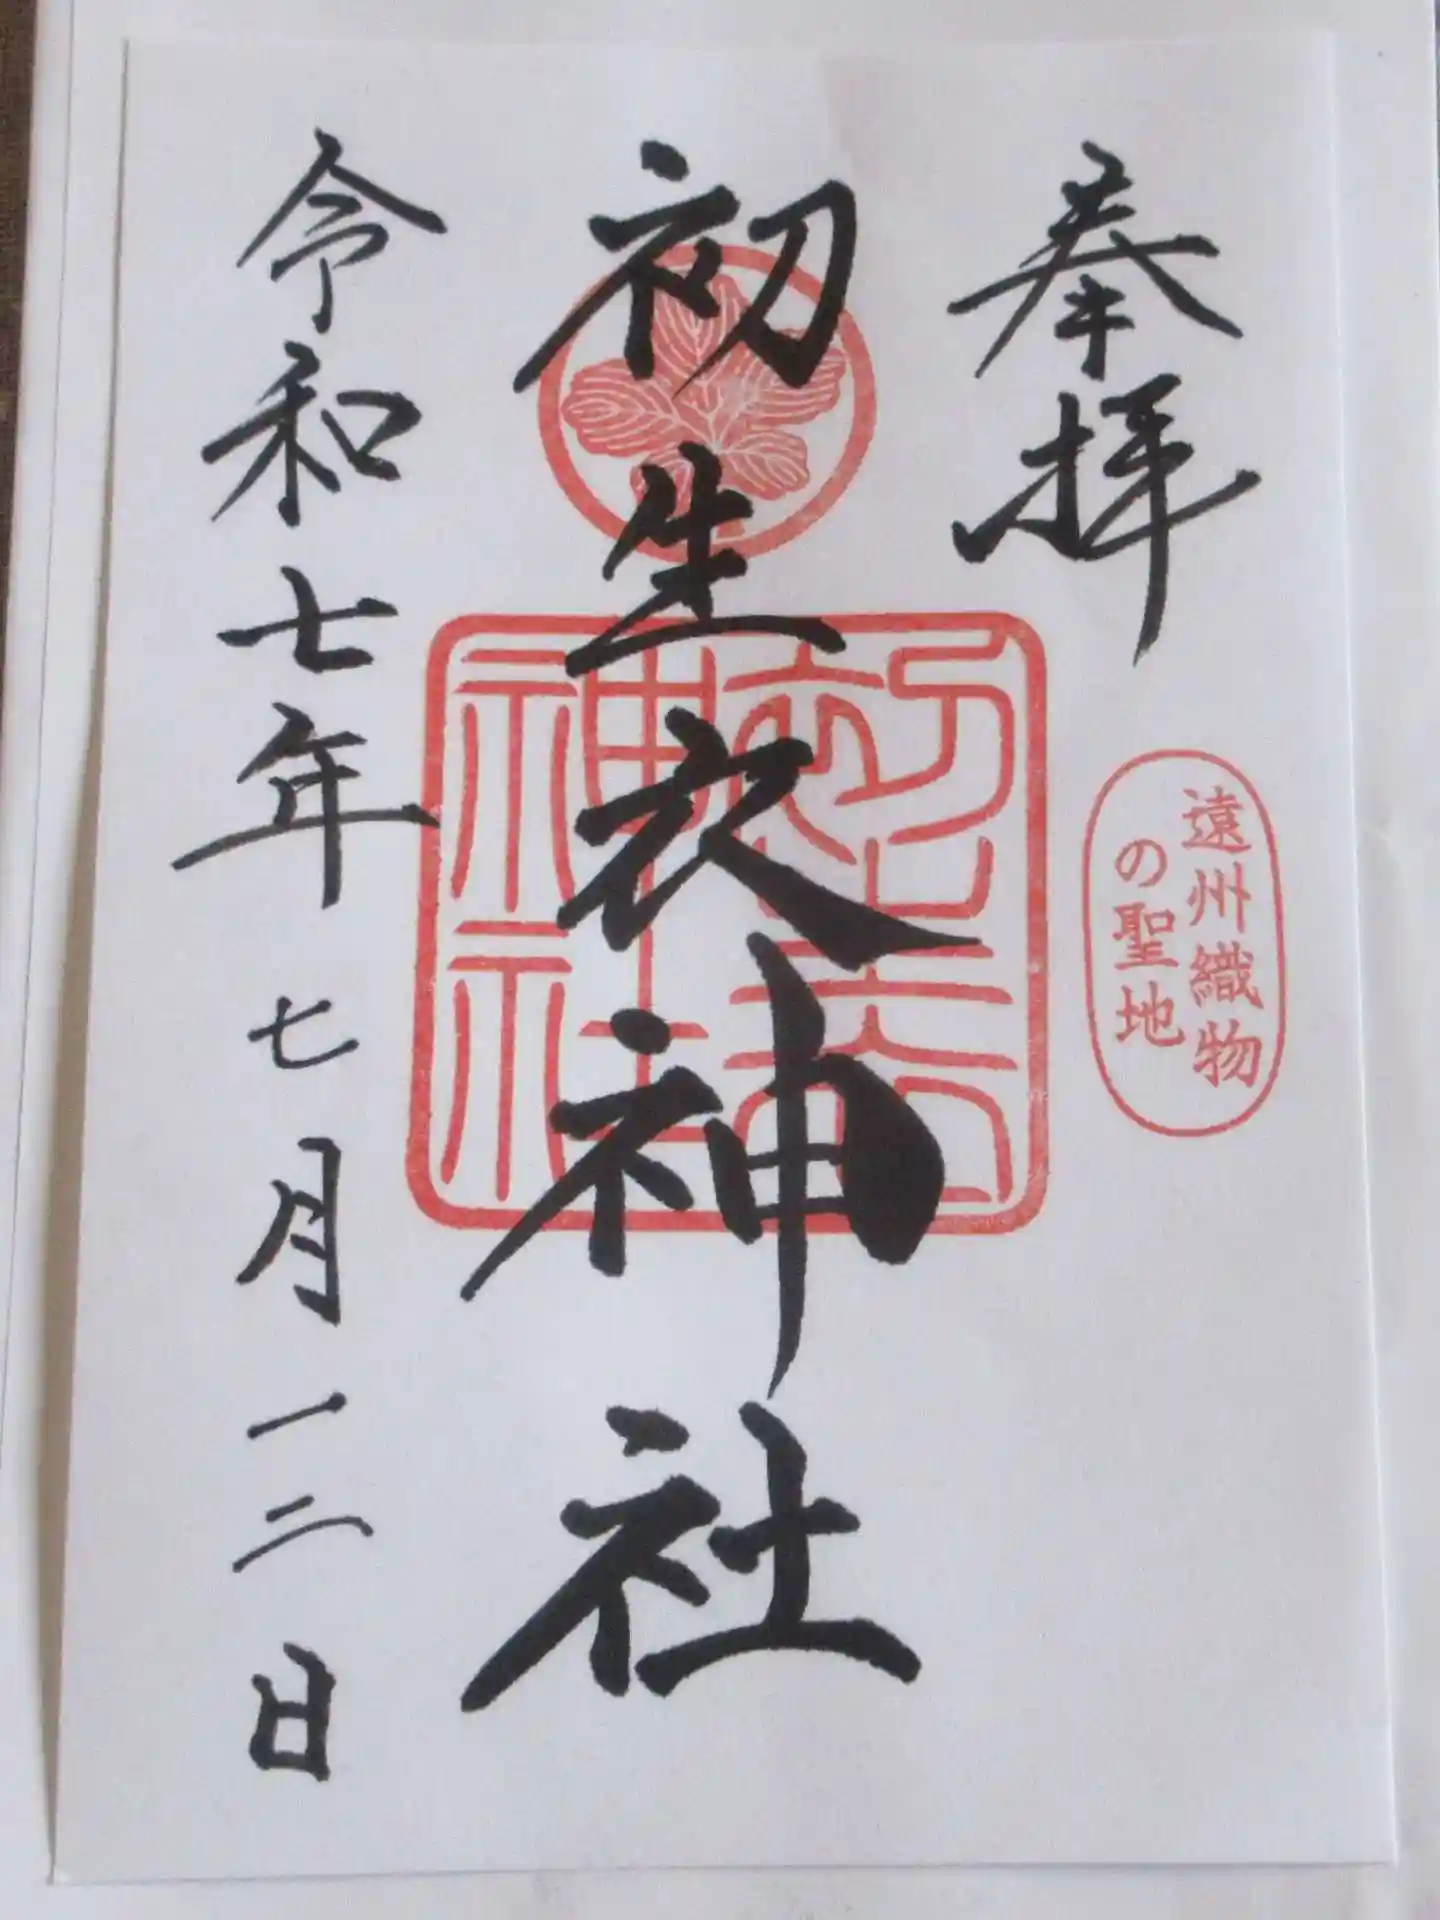 奉拝
遠州織物
の聖地
初生衣神社
初生衣
神社
令和七年七月一二日